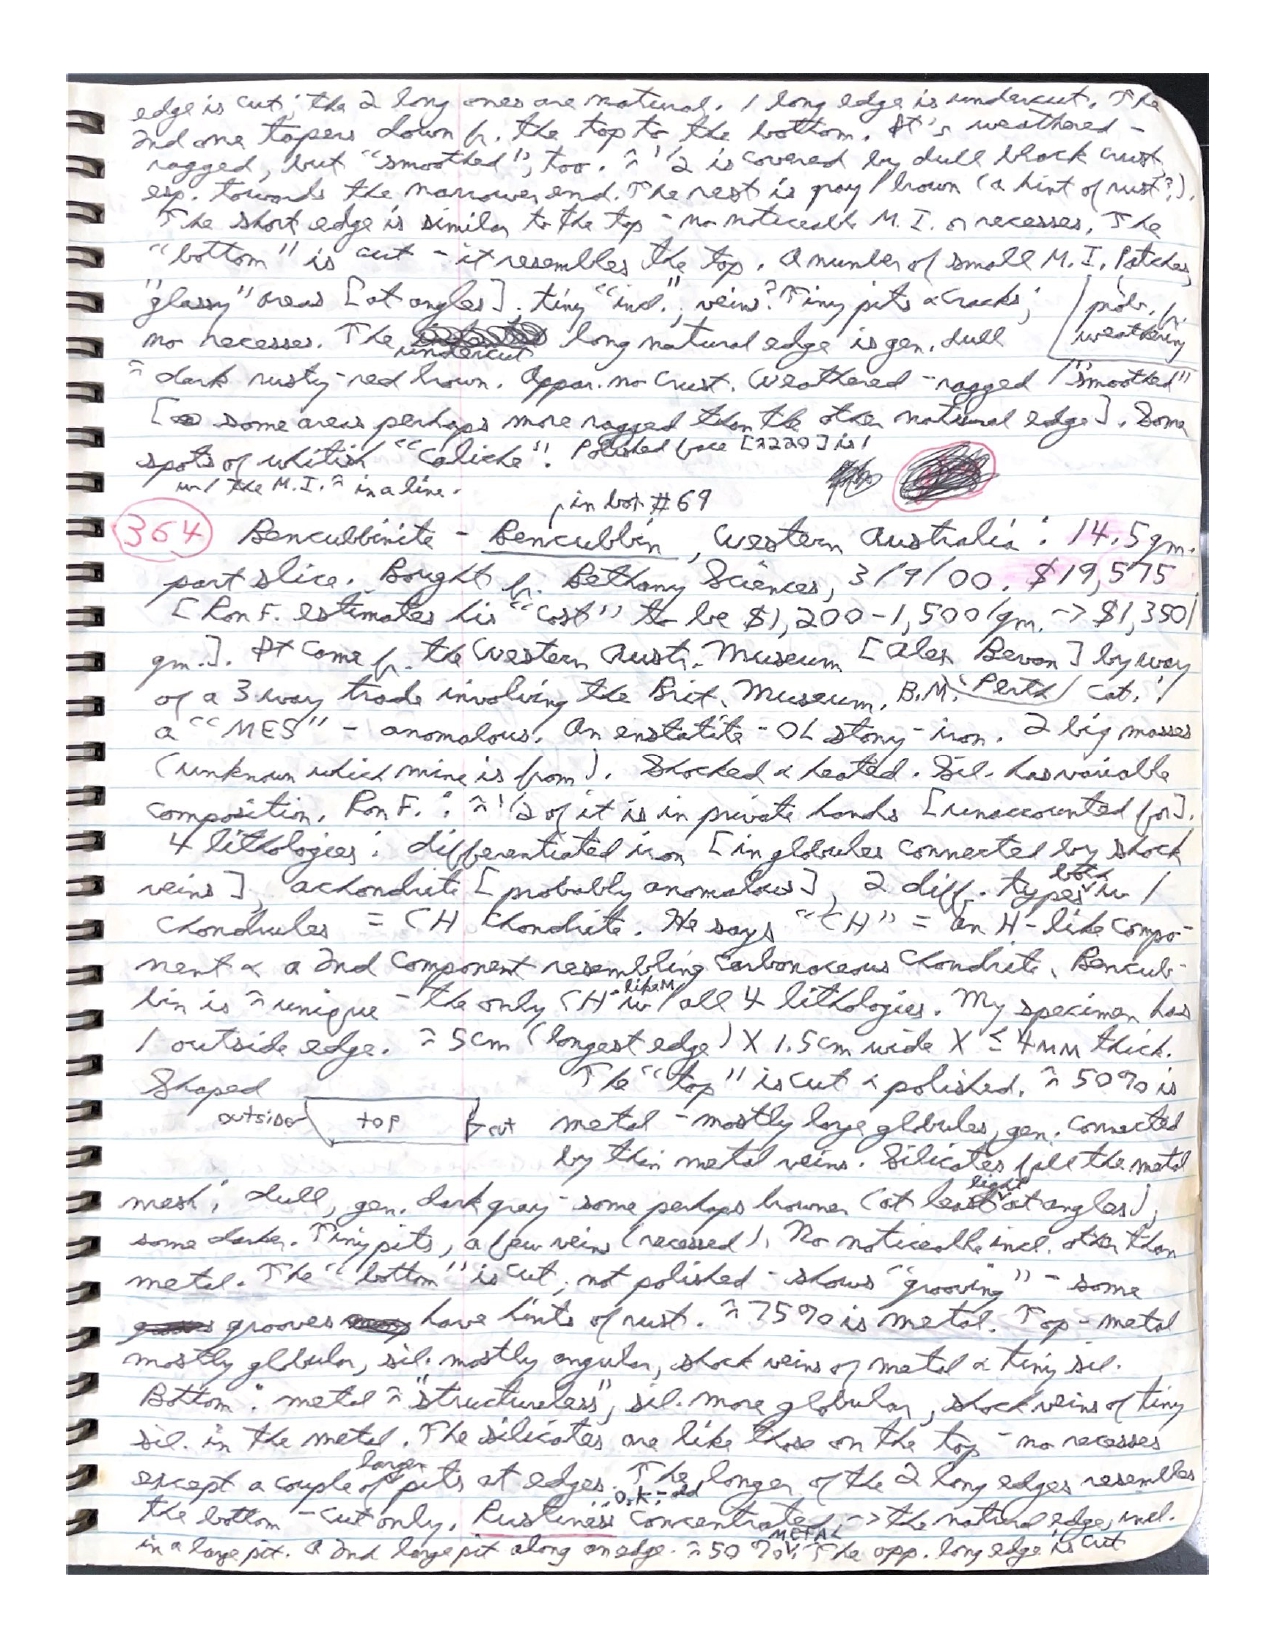 edge is cut; the 2 long ones are natural. 1 long edge is undercut. The
2nd one tapers down fr. the top to the bottom. It's weathered -
ragged, but "smoothed", too. ≈ 1/2 is covered by dull black crust
esp. towards the narrower end. The rest is gray/brown (a hint of rust?).
The short edge is similar to the top - no noticeable M.I. or recesses. The
"bottom" is cut - it resembles the top. A number of small M.I. Patches,
"glassy" areas [at angles], tiny "incl.", veins? Tiny pits & cracks;
prob. fr. weathering
no recesses. The undercut long natural edge is gen. dull
≈ dark rusty-red brown. Appar. no crust. Weathered - ragged / "smoothed"
[some areas perhaps more ragged than the other natural edge]. Some
spots of whitish "Caliche". Polished face [≈220] is 1
w/ the M.I. ≈ in a line.
in box #69
364 Bencubbinite - Bencubbin, Western Australia: 14.5gm.
part slice. Bought fr. Bethany Sciences, 3/9/00. $19,575
[Ron F. estimates his "cost" to be $1,200-1,500/gm. -> $1,350/
gm.]. It came fr. the Western Austr. Museum [Alex Bevan] by way
of a 3 way trade involving the Brit. Museum. B.M. Perth Cat.:
a "MES" - anomalous. An enstatite-OL stony-iron. 2 big masses
(unknown which mine is from). Shocked & heated. Sil. has variable
composition. Ron F.: ≈ 1/2 of it is in private hands [unaccounted for].
4 lithologies: differentiated iron [in globules connected by shock
veins], achondrite [probably anomalous], 2 diff. types both w/
chondrules = CH Chondrite. He says "CH" = an H-like compo-
nent & a 2nd component resembling carbonaceous chondrite. Bencub-
bin is ≈ unique - the only CH-like M w/ all 4 lithologies. My specimen has
1 outside edge. ≈ 5cm (longest edge) X 1.5cm wide X ≤ 4mm thick.
Shaped The "top" is cut & polished. ≈ 50% is
outside top cut metal - mostly large globules, gen. connected
by thin metal veins. Silicates fill the metal
mesh; dull, gen. dark gray - some perhaps browner (at least at light angles),
some darker. Tiny pits, a few veins (recessed). No noticeable incl. other than
metal. The "bottom" is cut, not polished - shows "grooving" - some
grooves have hints of rust. ≈ 75% is metal. Top - metal
mostly globular, sil. mostly angular, shock veins of metal & tiny sil.
Bottom: metal ≈ "structureless", sil. more globular, shock veins of tiny
sil. in the metal. The silicates are like those on the top - no recesses
except a couple of larger pits at edges. The longer of the 2 long edges resembles
the bottom - cut only. Rustiness concentrated -> the natural edge, incl.
in a large pit. A 2nd large pit along an edge. ≈ 50% METAL. The opp. long edge is cut